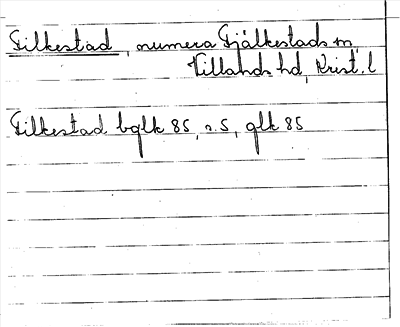 Filkestad, numera Fjälkestads sn,
Villands hd, Krist. l
Filkestad bglk 85, s. 5, glk 85